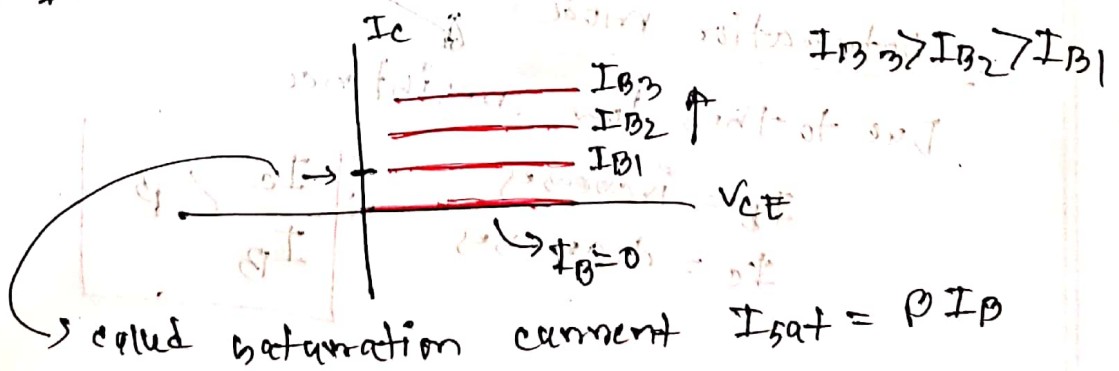 Ic
IB3 > IB2 > IB1
IB3
IB2
IB1
VCE
IB = 0
called saturation current Isat = βIB